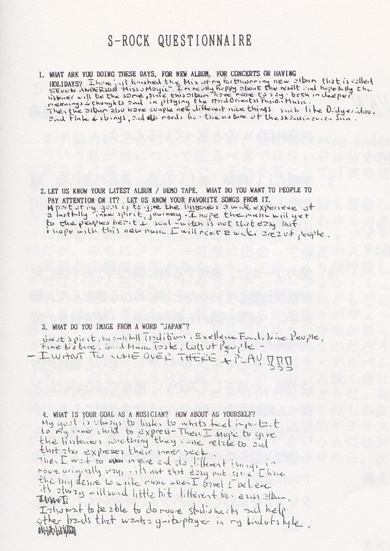 S-ROCK QUESTIONNAIRE
1. WHAT ARE YOU DOING THESE DAYS, FOR NEW ALBUM, FOR CONCERTS OR HAVING
HOLIDAYS? I have just finished the Mix of my forthcoming new album that is called
STEVEN ANDERSON "Missa Magica". I'm really happy about the result and hopefully the
listener will be the same, since this album have more to say - both in deeper
meanings & thoughts and in playing the Hard Oriental Fusion Music.
Then the album also have couple new different nice things such like Didgeridoo,
and Flute & strings, and
2. LET US KNOW YOUR LATEST ALBUM / DEMO TAPE. WHAT DO YOU WANT TO PEOPLE TO
PAY ATTENTION ON IT? LET US KNOW YOUR FAVORITE SONGS FROM IT.
is to give the listeners a wide experience of
a inner spirit journey - I hope the music will get
to the peoples heart & soul - which is not that easy but
I hope with this new music I will reach a wider area of people.
3. WHAT DO YOU IMAGE FROM A WORD "JAPAN"?
Great spirit, beautiful Traditions, Excellence Food, Nice People,
Fine Nature, Good Music Taste, Lots of People -
- I WANT TO COME OVER THERE & PLAY!!!
4. WHAT IS YOUR GOAL AS A MUSICIAN? HOW ABOUT AS YOURSELF?
My goal is always to listen to whats feel important
to my inner child to express - Then I hope to give
the listeners something they can relate to and
that also expresses their inner seek.
Then I want to inspire and do different things in
more originally ways - it's not that easy but since I have
the big desire to write music when I travel I believe
it's always will sound little bit different for each album.
I also want to be able to do more studio works and help
other bands that wants a guitarplayer in my kind of style.